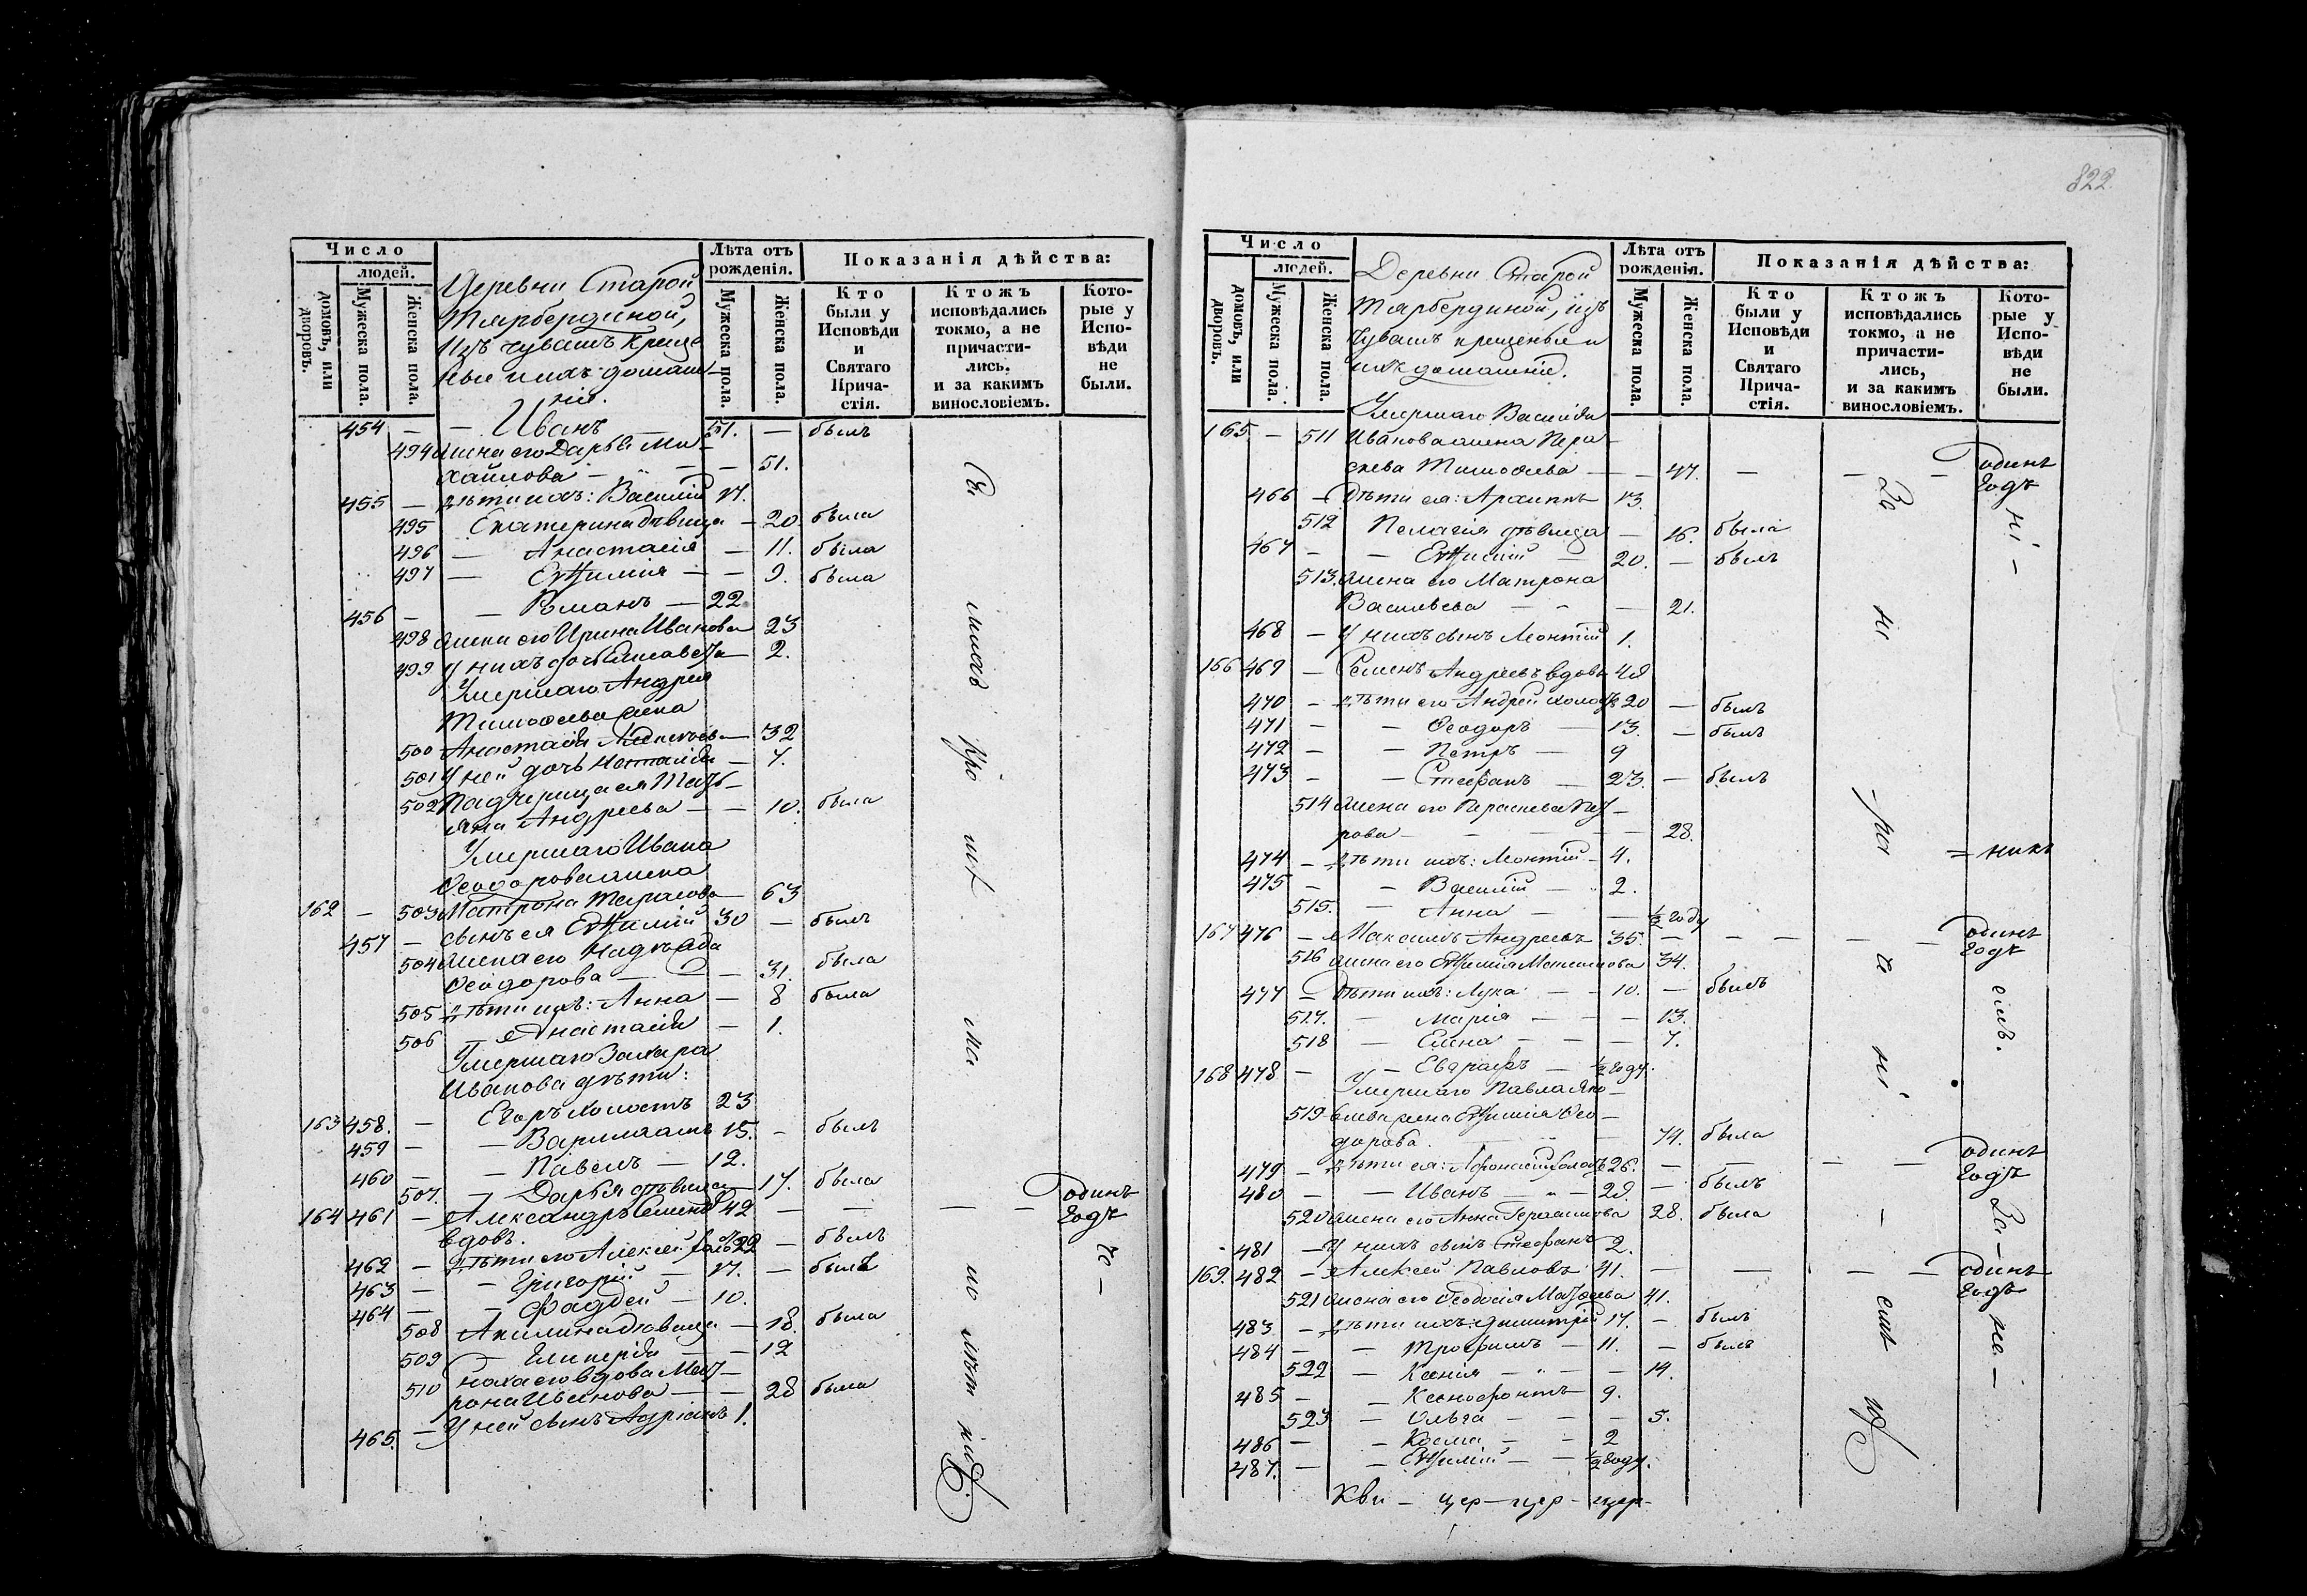 822.
Число
людей.
домовъ, или дворовъ.
Мужеска пола.
Женска пола.
Деревни Старой
Тярбердиной,
Изъ чувашъ креще
ные и ихъ домаш
ніе.
Лѣта отъ рожденія.
Мужеска пола.
Женска пола.
Показанія дѣйства:
Кто были у Исповѣди и Святаго Прича- стія.
Ктожъ исповѣдались токмо, а не причасти- лись. и за какимъ винословіемъ.
Кото- рые у Испо- вѣди не были.
454 — — Иванъ — 51. — былъ
494 жена его Дарья Ми
хайлова — — — 51.
455 — дѣти ихъ: Василій 17.
495 Екатерина дѣвица — 20. была
496 — Анастасія — 11. была
497 — Евѳимія — — 9. была
456 — — Романъ — 22.
498 жена его Ирина Иванова 23
499 у нихъ дочь Елисавета — 2.
Умершаго Андрея
Тимоѳева жена
500 Анастасія — 32
501 У ней дочь Наталія — 7.
502 Падчерица ея Тать—
яна Андреева — — 10. была
Умершаго Ивана
Ѳеодорова жена
162 — 503 Матрона Тарасова — 63
457 — сынъ ея Евѳимій 30 — былъ
504 жена его Надежда
Ѳеодорова — — 31. была
505 дѣти ихъ: Анна — 8 была
506 — Анастасія — 1.
Умершаго Захара
Иванова дѣти:
163 458. — Егоръ холостъ 23
459 — — Варлаамъ 15. — былъ
460 — — Павелъ — 12.
507. — Дарья дѣвица — 17. была
164 461 — Александръ Семеновъ 42 — — — — одинъ
вдовъ. годъ
462 — дѣти его Алексей хол. 22 — былъ
463 — — Григорій — 17. — былъ
464 — — Фаддей — 10.
508 Акилина дѣвица — 18. была
509 — Гликерія — — 12
510 вдова Мат—
рона Иванова — — 28 была
465. — У ней сынъ Адріанъ 1.
Число
людей.
домовъ, или дворовъ.
Мужеска пола.
Женска пола.
Деревни Старой
Тярбердиной, изъ
Чувашъ крещеные и
ихъ домашніе.
Лѣта отъ рожденія.
Мужеска пола.
Женска пола.
Показанія дѣйства:
Кто были у Исповѣди и Святаго Прича- стія.
Ктожъ исповѣдались токмо, а не причасти- лись, и за какимъ винословіемъ.
Кото- рые у Испо- вѣди не были.
Умершаго Василія
165. — 511 Иванова жена Пара—
скева Тимоѳева — — 47. — — — одинъ
годъ
466 — Дѣти ея: Архиппъ 13.
512 Пелагія дѣвица — 16. была
467 — — Евѳимій — 20. — былъ
513. жена его Матрона
Васильева — — — 21.
468 — У нихъ сынъ Монтій 1.
166 469 — Семенъ Андреевъ вдовъ 48
470 — дѣти его Андрей холостъ 20 — былъ
471 — — Ѳеодоръ — 13. — былъ
472 — — Петръ — 9
473 — — Стефанъ — 23. — былъ
514 жена его Параскева Пет—
рова — — — — 28.
474 — дѣти ихъ: Монтій — 4.
475 — — Василій — 2.
515. — Анна — — ½ году
167 476 — Максимъ Андреевъ 35. — — — — — одинъ
годъ
516 жена его Евѳимія Максимова 34.
477 — Дѣти ихъ: Лука — — 10. — былъ
517. — Марія — — — 13.
518 — Елена — — — 7.
168 478 — — Евграфъ — ½ году.
Умершаго Павла Яко—
519 влева жена Евѳимія Ѳео—
дорова. — — 74. была
479 — дѣти ея: Афонасій холостъ 26. — — — — одинъ
годъ
480 — — Иванъ — — 28. — былъ
520 жена его Анна Герасимова 28. была
481 — У нихъ сынъ Стефанъ 2.
169. 482 — Алексей Павловъ 41. — — — — одинъ
годъ
521 жена его Ѳеодосія Матвеева 41.
483 — дѣти ихъ: Димитрій 17. — былъ
484 — — Трофимъ — 11. — былъ
522 — Ксенія — — — 14.
485 — — Ксенофонтъ — 9.
523 — Ольга — — — 5.
486 — — Косма — — 2
487. — — Евѳимій — — ½ году.